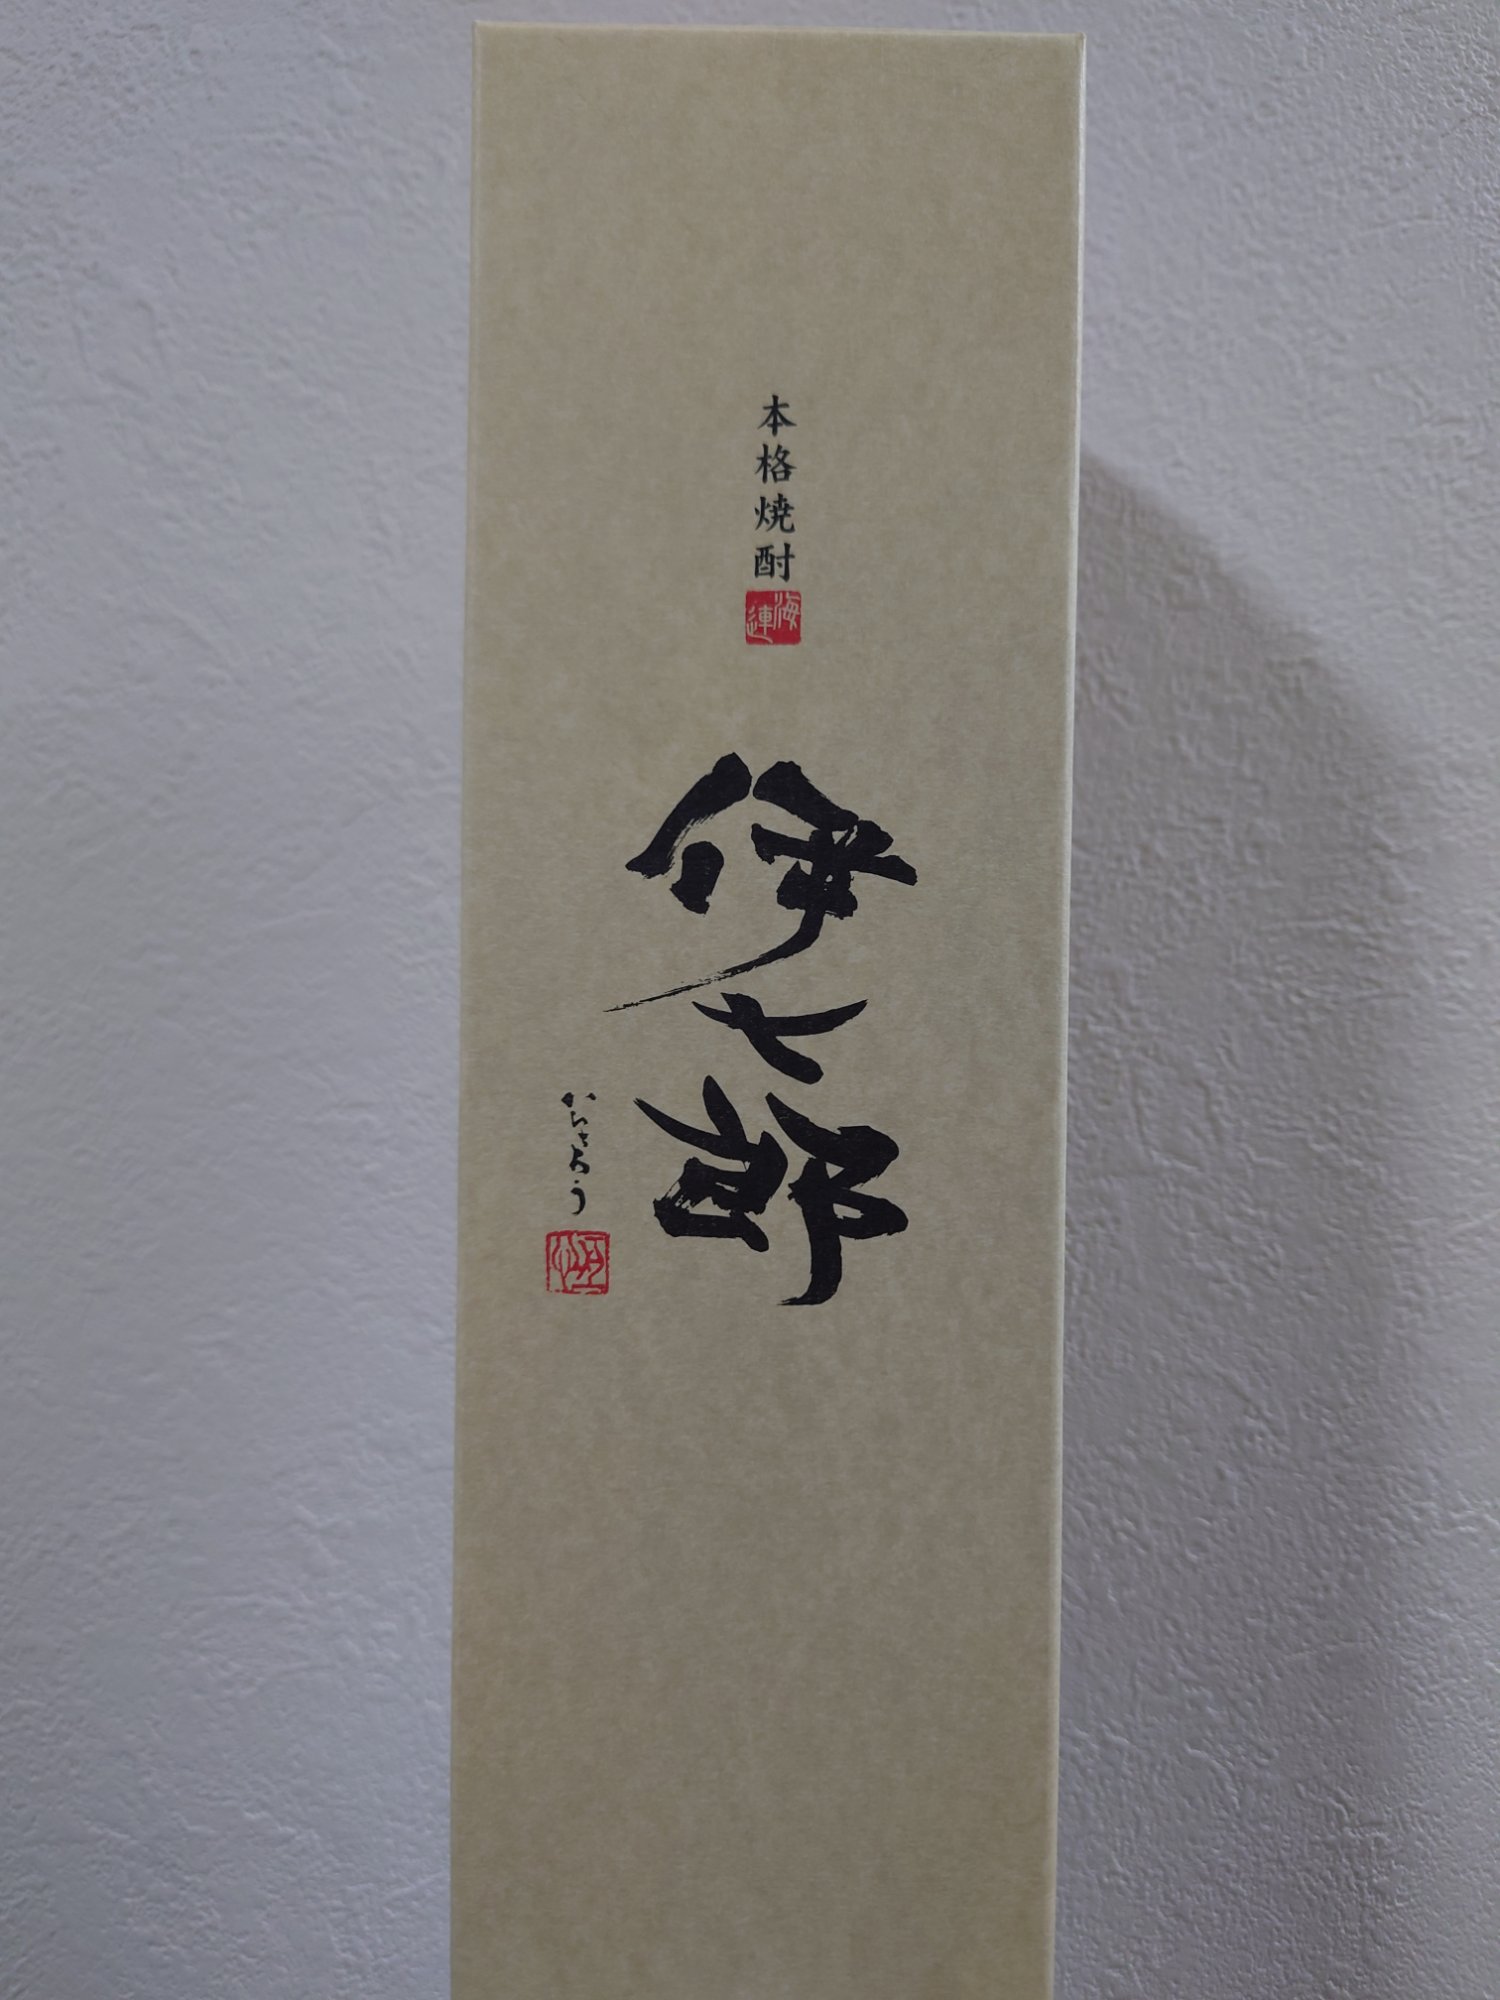 本格焼酎
海連
伊七郎
いちさろう